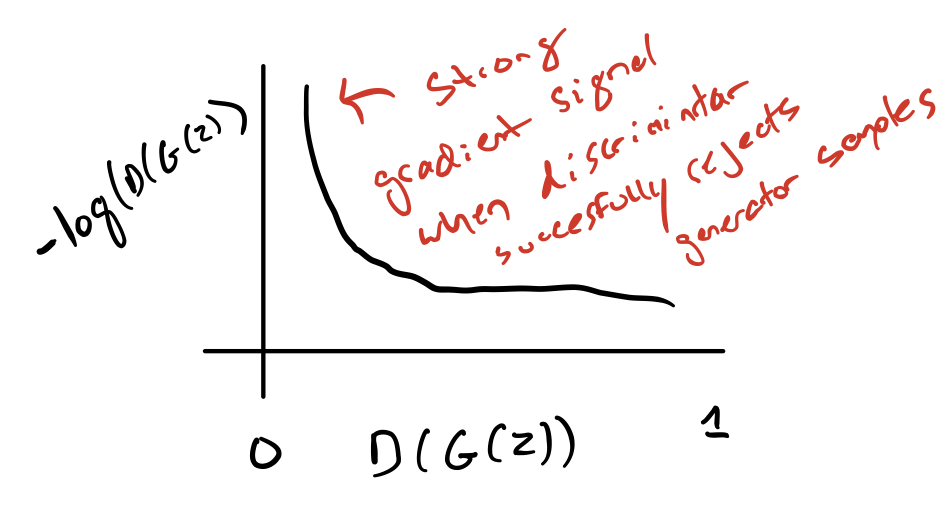 ← strong
gradient signal
when discrimintar
succesfully rejects
generator samples
-log(D(G(z))
0 D(G(z)) 1